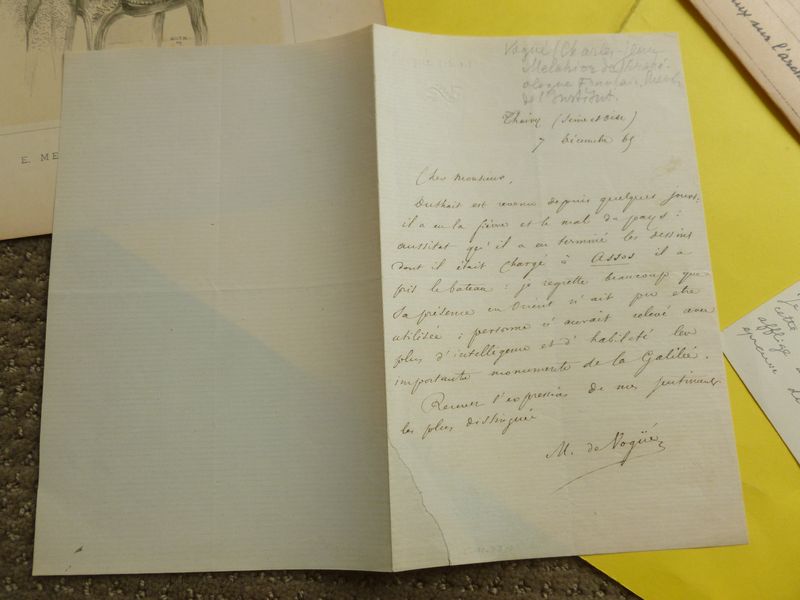 E. ME
Vogüé (Charles-Jean
Melchior de) Archéo-
ologue Français, Memb.
de l'Institut.
Thoiry (Seine et Oise)
7 Décembre 65
Cher Monsieur,
Duthoit est revenu depuis quelques jours:
il a eu la fièvre et le mal du pays:
aussitot qu'il a eu terminé les dessins
dont il était chargé à Assos il a
pris le bateau: je regrette beaucoup que
sa présence en Orient n'ait pu être
utilisée; personne n'aurait relevé avec
plus d'intelligence et d'habileté les
importants monuments de la Galilée.
Recevez l'expression de mes sentiments
les plus distingués
M. de Vogüé
ux sur l'arch
cette
afflige
epreuve
de